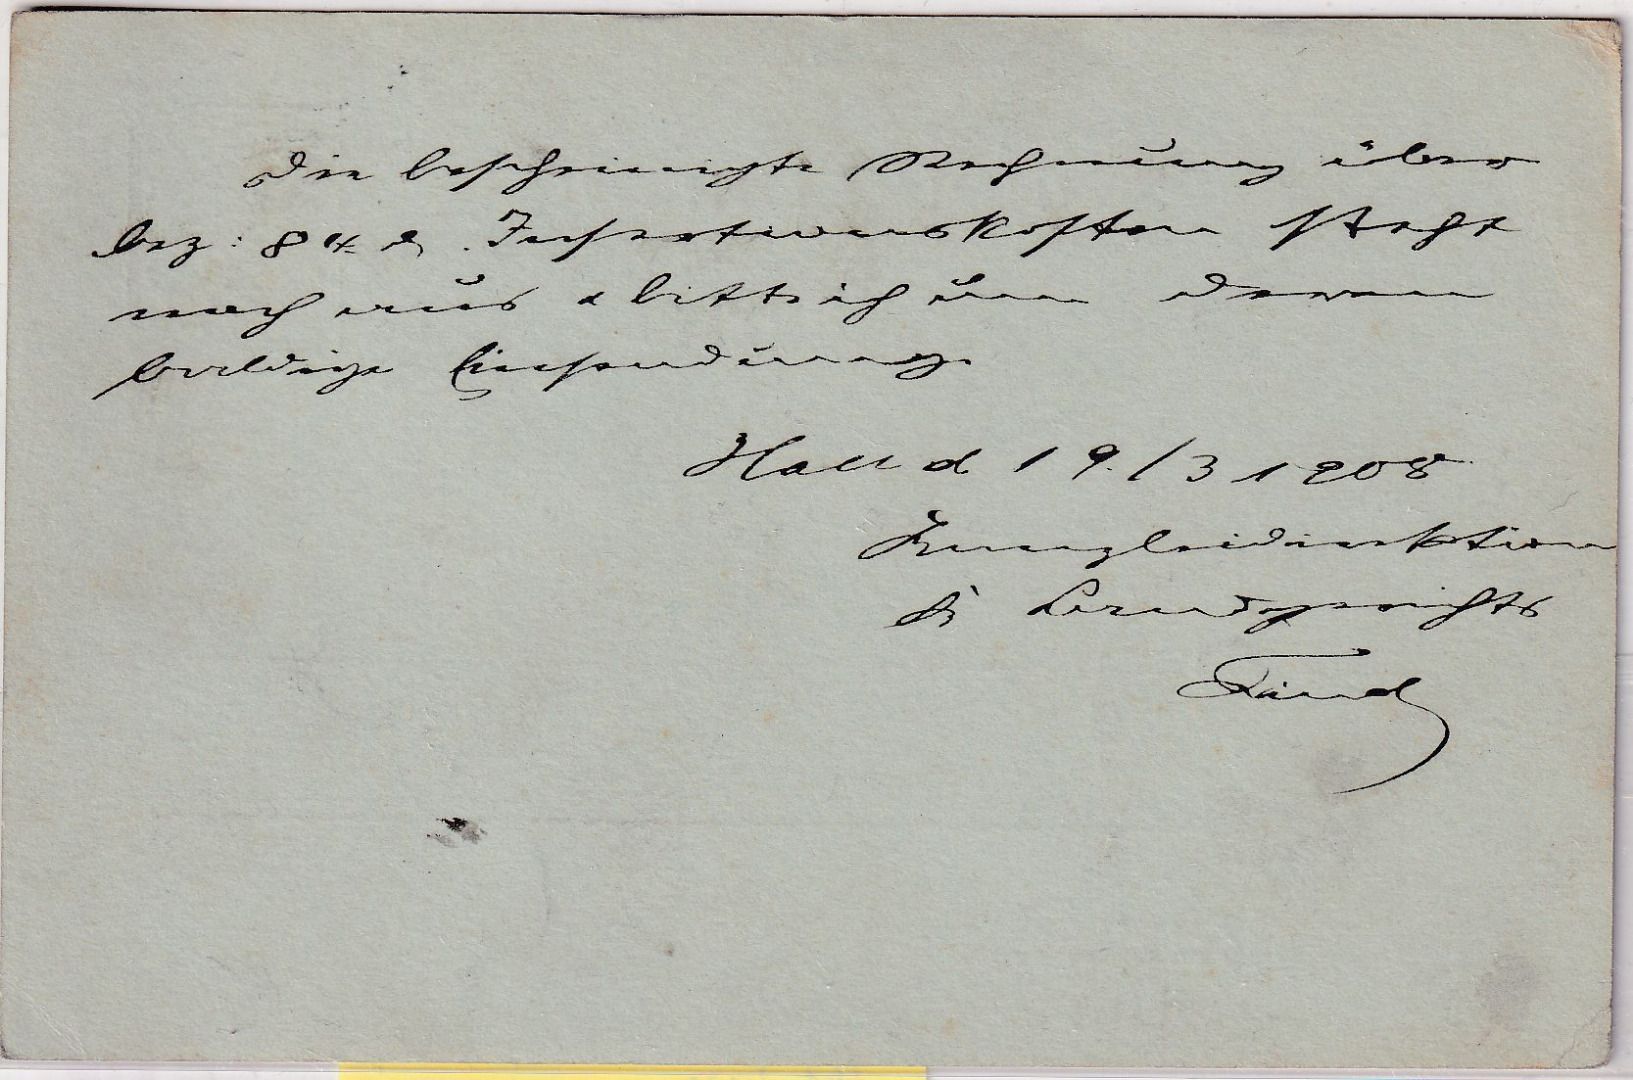 Die bescheinigte Rechnung über
bez: 84 d. Insertionskosten steht
noch aus & bitte ich um deren
baldige Einsendung.
Hall d 19./3 1908
Kanzleidirektion
d. Landgerichts